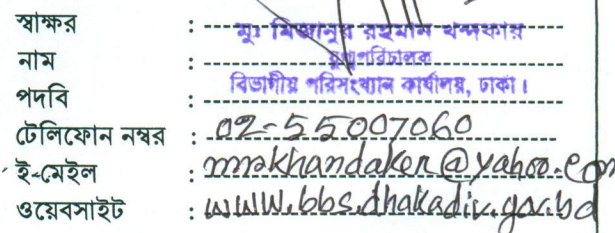 স্বাক্ষর : মুঃ মিজানুর রহমান খন্দকার
নাম : যুগ্মপরিচালক
পদবি : বিভাগীয় পরিসংখ্যান কার্যালয়, ঢাকা।
টেলিফোন নম্বর : 02-55007060
ই-মেইল : mmrkhandaker@yahoo.com
ওয়েবসাইট : www.bbs.dhakadiv.gov.bd